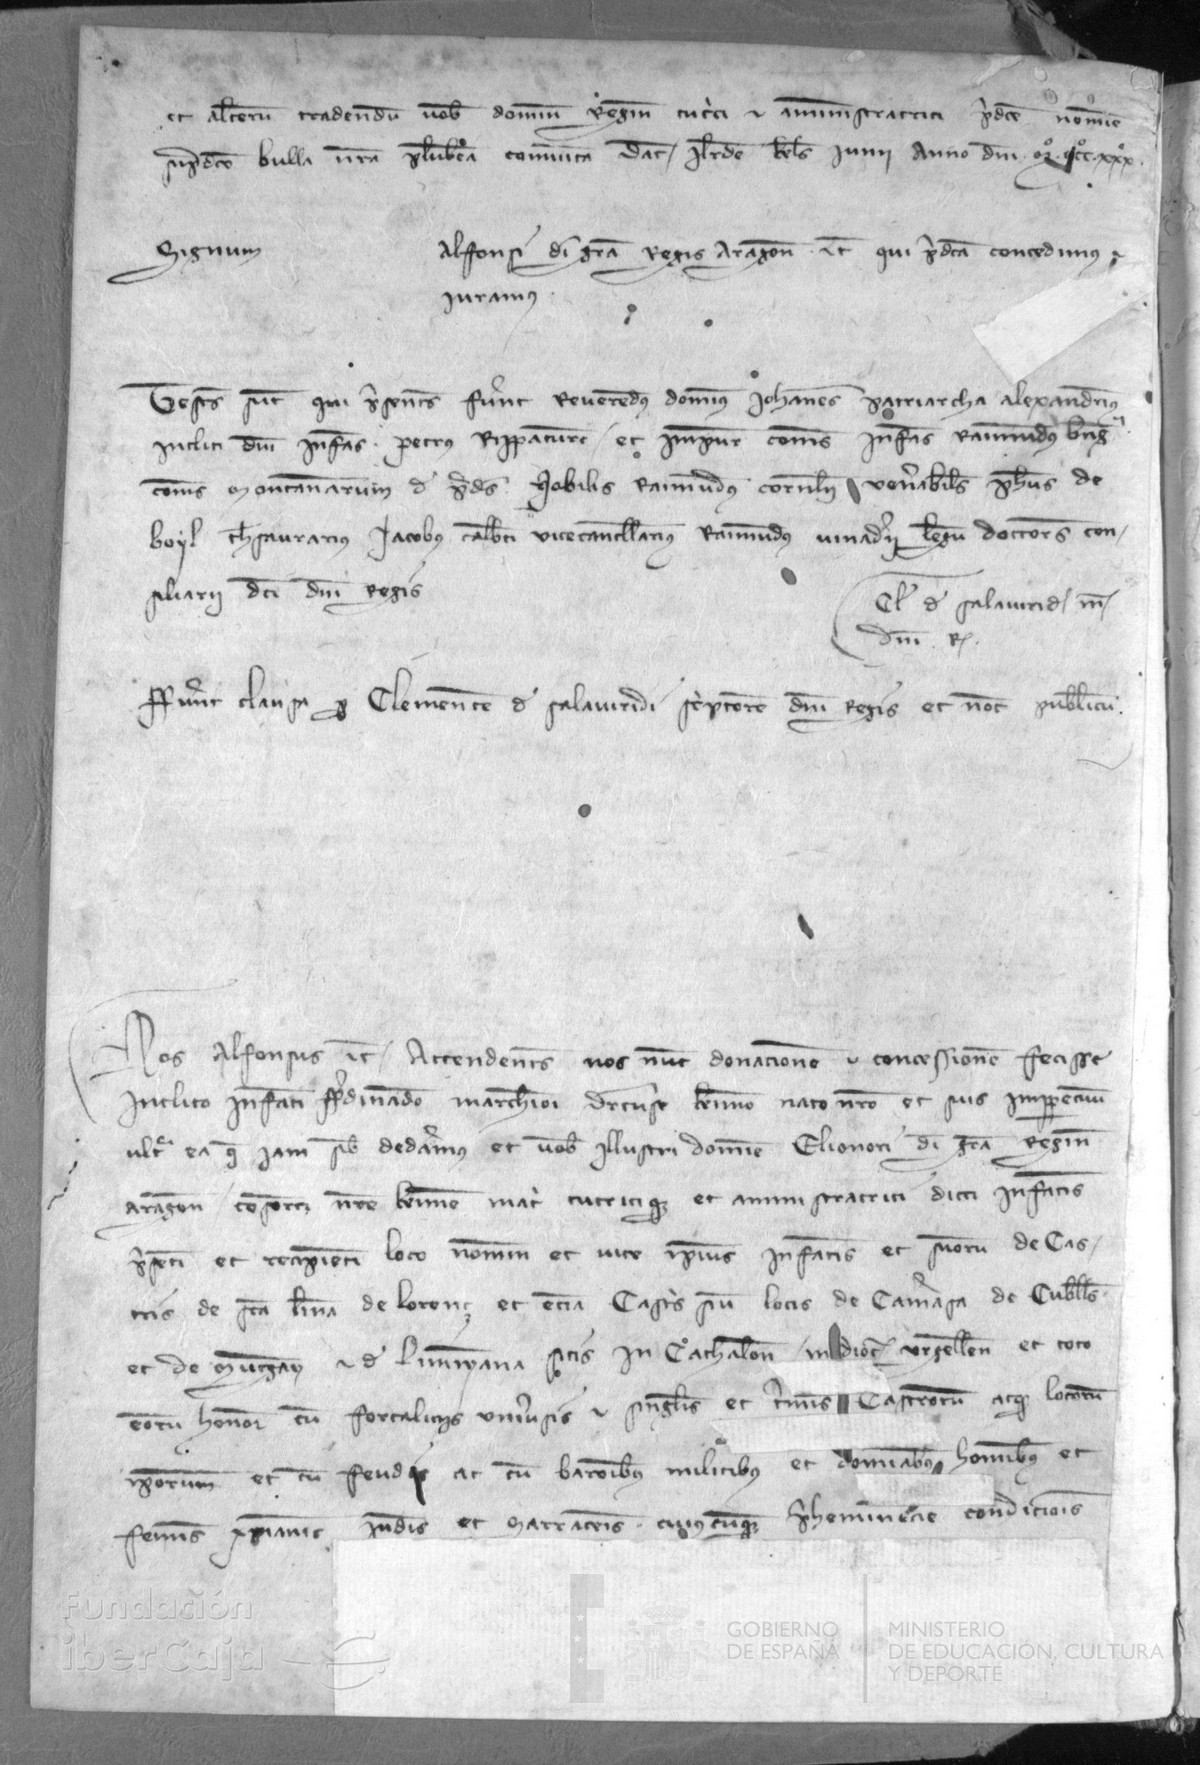 et alterum tradendum vob domine Regine tutrici et administratrici predce nomine
supradce bulla nra plumbea comunita Dat Ilerde kls Junii Anno dni Mo CCCo xxxo.
Signum Alfonsi di gra Regis Aragon etc qui predca concedimus et
iuramus.
Testes sunt qui presentes fuerunt Reverendus dominus Johannes Patriarcha Alexandrinus
Incliti dni Infans Petrus Rippacurc et Impur comes Infans Raimundus bng
comes Montanearum de prads Nobilis Raimundus cornelii venerabiles phus de
boyl thesaurarius Jacobus vicecancellarius Raimundus vinaderii legum doctores con
siliarii dci dni Regis
Cl de salavirid m
dni R.
ffuerunt clausa per Clementem de salaviridi scriptorem dni Regis et not publicum.
Nos Alfonsus etc Attendentes nos nunc donacionem et concessionem fecisse
Inclito Infanti fferdinando marchioni Dertuse krmo nato nro et suis imperpetuum
ultra ea que iam sibi dederamus et vob Illustri domine Elionori di gra Regine
Aragon consorti nre krme matri tutricique et aministratrici dicti Infantis
presenti et recipienti loco nomine et vice ipsius Infantis et suorum de Cas
tris de sca lina de lorenç et eciam Castris seu locis de Camarasa de Cubells
et de Mungay et de sitis in Cathalon in dioc Urgellen et toto
eorum honore cum fortaliciis universis et singulis et terminis Castrorum atque locorum
ipsorum et cum feudis ac cum baronibus militibus et dominabus hominibus et
feminis xpianis Judeis et Sarracenis cuiuscumque preheminencie condicionis
Fundación
iberCaja
GOBIERNO
DE ESPAÑA
MINISTERIO
DE EDUCACIÓN, CULTURA
Y DEPORTE